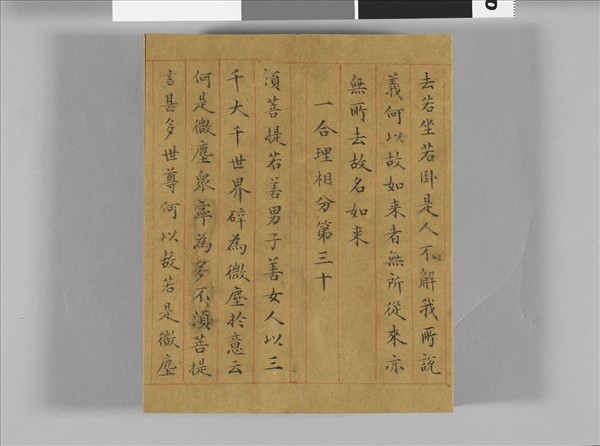 去若坐若卧是人不解我所說
義何以故如来者無所從來亦
無所去故名如来
一合理相分第三十
湏菩提若善男子善女人以三
千大千世界碎為微塵於意云
何是微塵眾寧為多不湏菩提
言甚多世尊何以故若是微塵